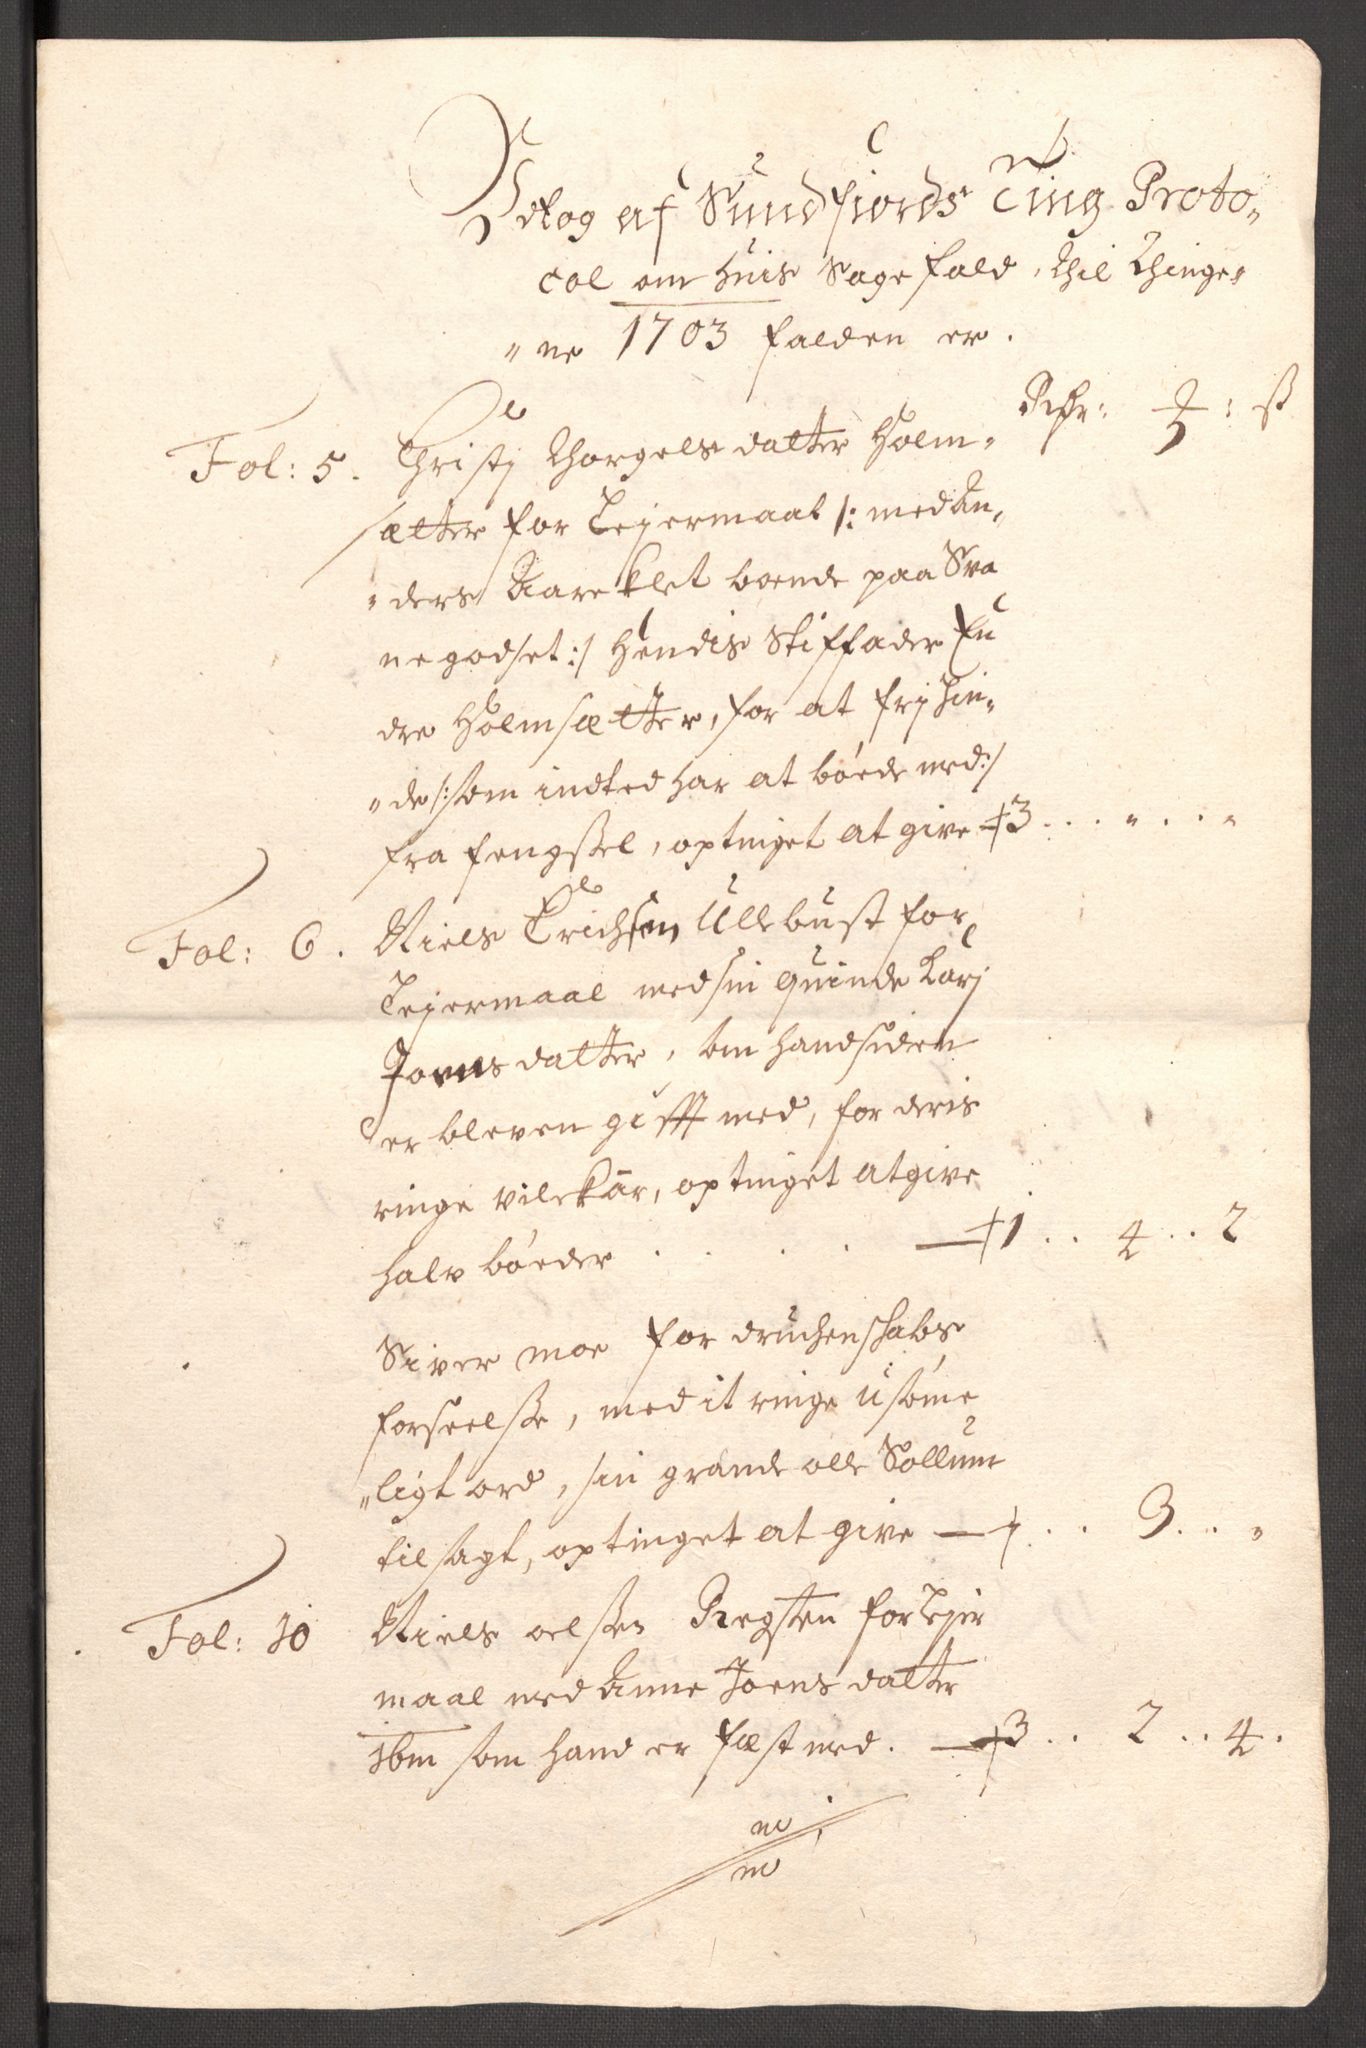 Udtog af Sundfiords Ting Proto„
col om huis Sagefald, thil Thinge„
„ne 1703 falden er.
Rixdr: ₰: ß
Fol: 5. Christj Thorgelsdatter Holm„
sætter for Lejermaal /: med An„
„ders Aareklet boende paa Sva
negodset:/ Hendis Stiffader En
dre Holmsætter, for at frj hin„
„de /: som indted har at bøede med:/
fra fengßel, optinget at give 3 . . . „ . . . „
Fol: 6. Niels Erichsen Ullebust for
Lejermaal med sin quinde Karj
Joensdatter, som hand siden
er bleven gifft med, for deris
ringe vilckår, optinget at give
halv bøeder . . . . 1 . . 4 . . 2
Siver moe for druchenschabs
forseelße, med it ringe usømme
„ligt ord, sin grande olle Sollum
tilsagt, optinget at give — . . 3 . . „
Fol: 10 Niels oelßen Regsten for Lejer
maal med Anne Joensdatter
ibm som hand er fæst med. — 3 . . 2 . . 4 .